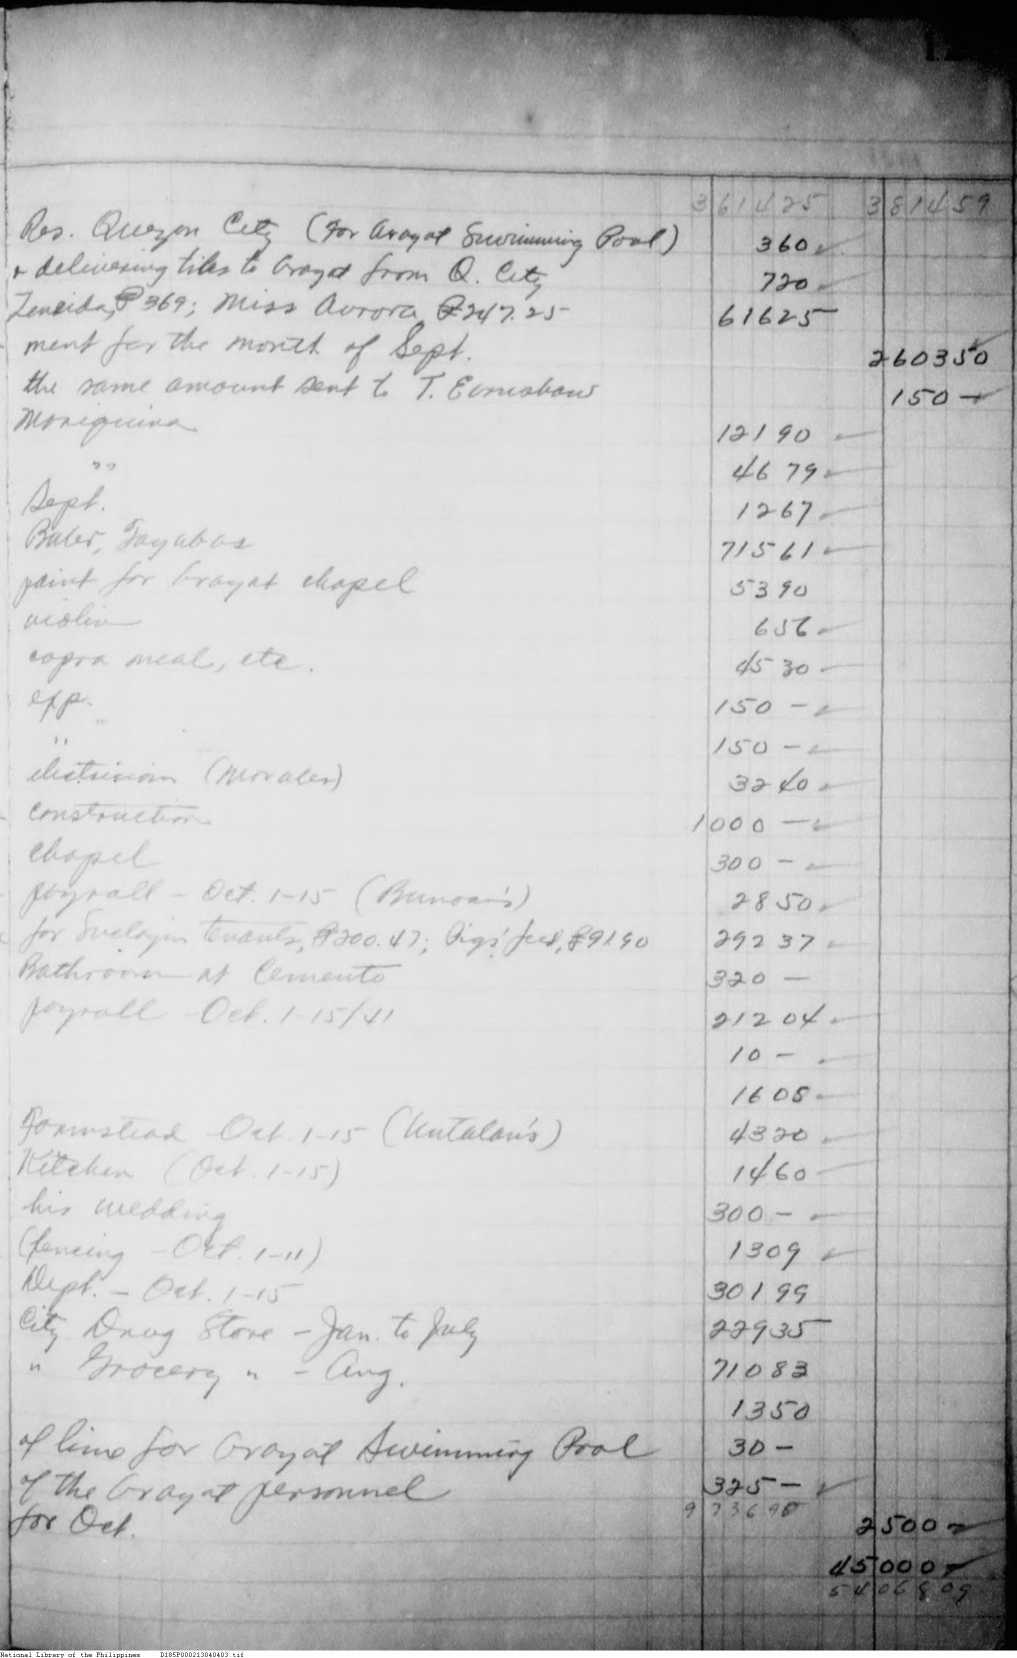 361425 381459
Res. Quezon City (for Arayat Swimming Pool) 360
+ delivering tiles to Arayat from Q. City 720
Zeneida, ₱369; Miss Aurora ₱247.25 61625
ment for the month of Sept. 260350
the same amount sent to T. Earnshaw 150 —
Mariquina 12190
" 4679
Sept. 1267
Baler, Tayabas 71561
paint for Arayat chapel 5390
violin 656
copra meal, etc. 4530
exp. 150 —
" 150 —
electrician (Morales) 3240
construction 1000 —
chapel 300 —
payroll - Oct. 1-15 (Bunoan's) 2850
for tenants, ₱200.47; Pigs' feed, ₱91.90 29237
Bathroom at Cemento 320 —
payroll - Oct. 1-15/41 21204
10 —
1608
Farmstead - Oct. 1-15 (Catalan's) 4320
Kitchen (Oct. 1-15) 1460
his wedding 300 —
(fencing - Oct. 1-11) 1309
Dept. - Oct. 1-15 30199
City Drug Store - Jan. to July 22935
" Grocery " - Aug. 71083
1350
of lime for Arayat Swimming Pool 30 —
of the Arayat personnel 325 —
973698
for Oct. 2500 —
45000 —
5406809
National Library of the Philippines D185P000213040403.tif